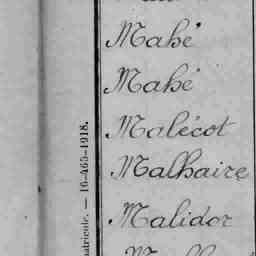 Mahé
Mahé
Malécot
Malhaire
Malidor
atricule. — 16-465-1918.